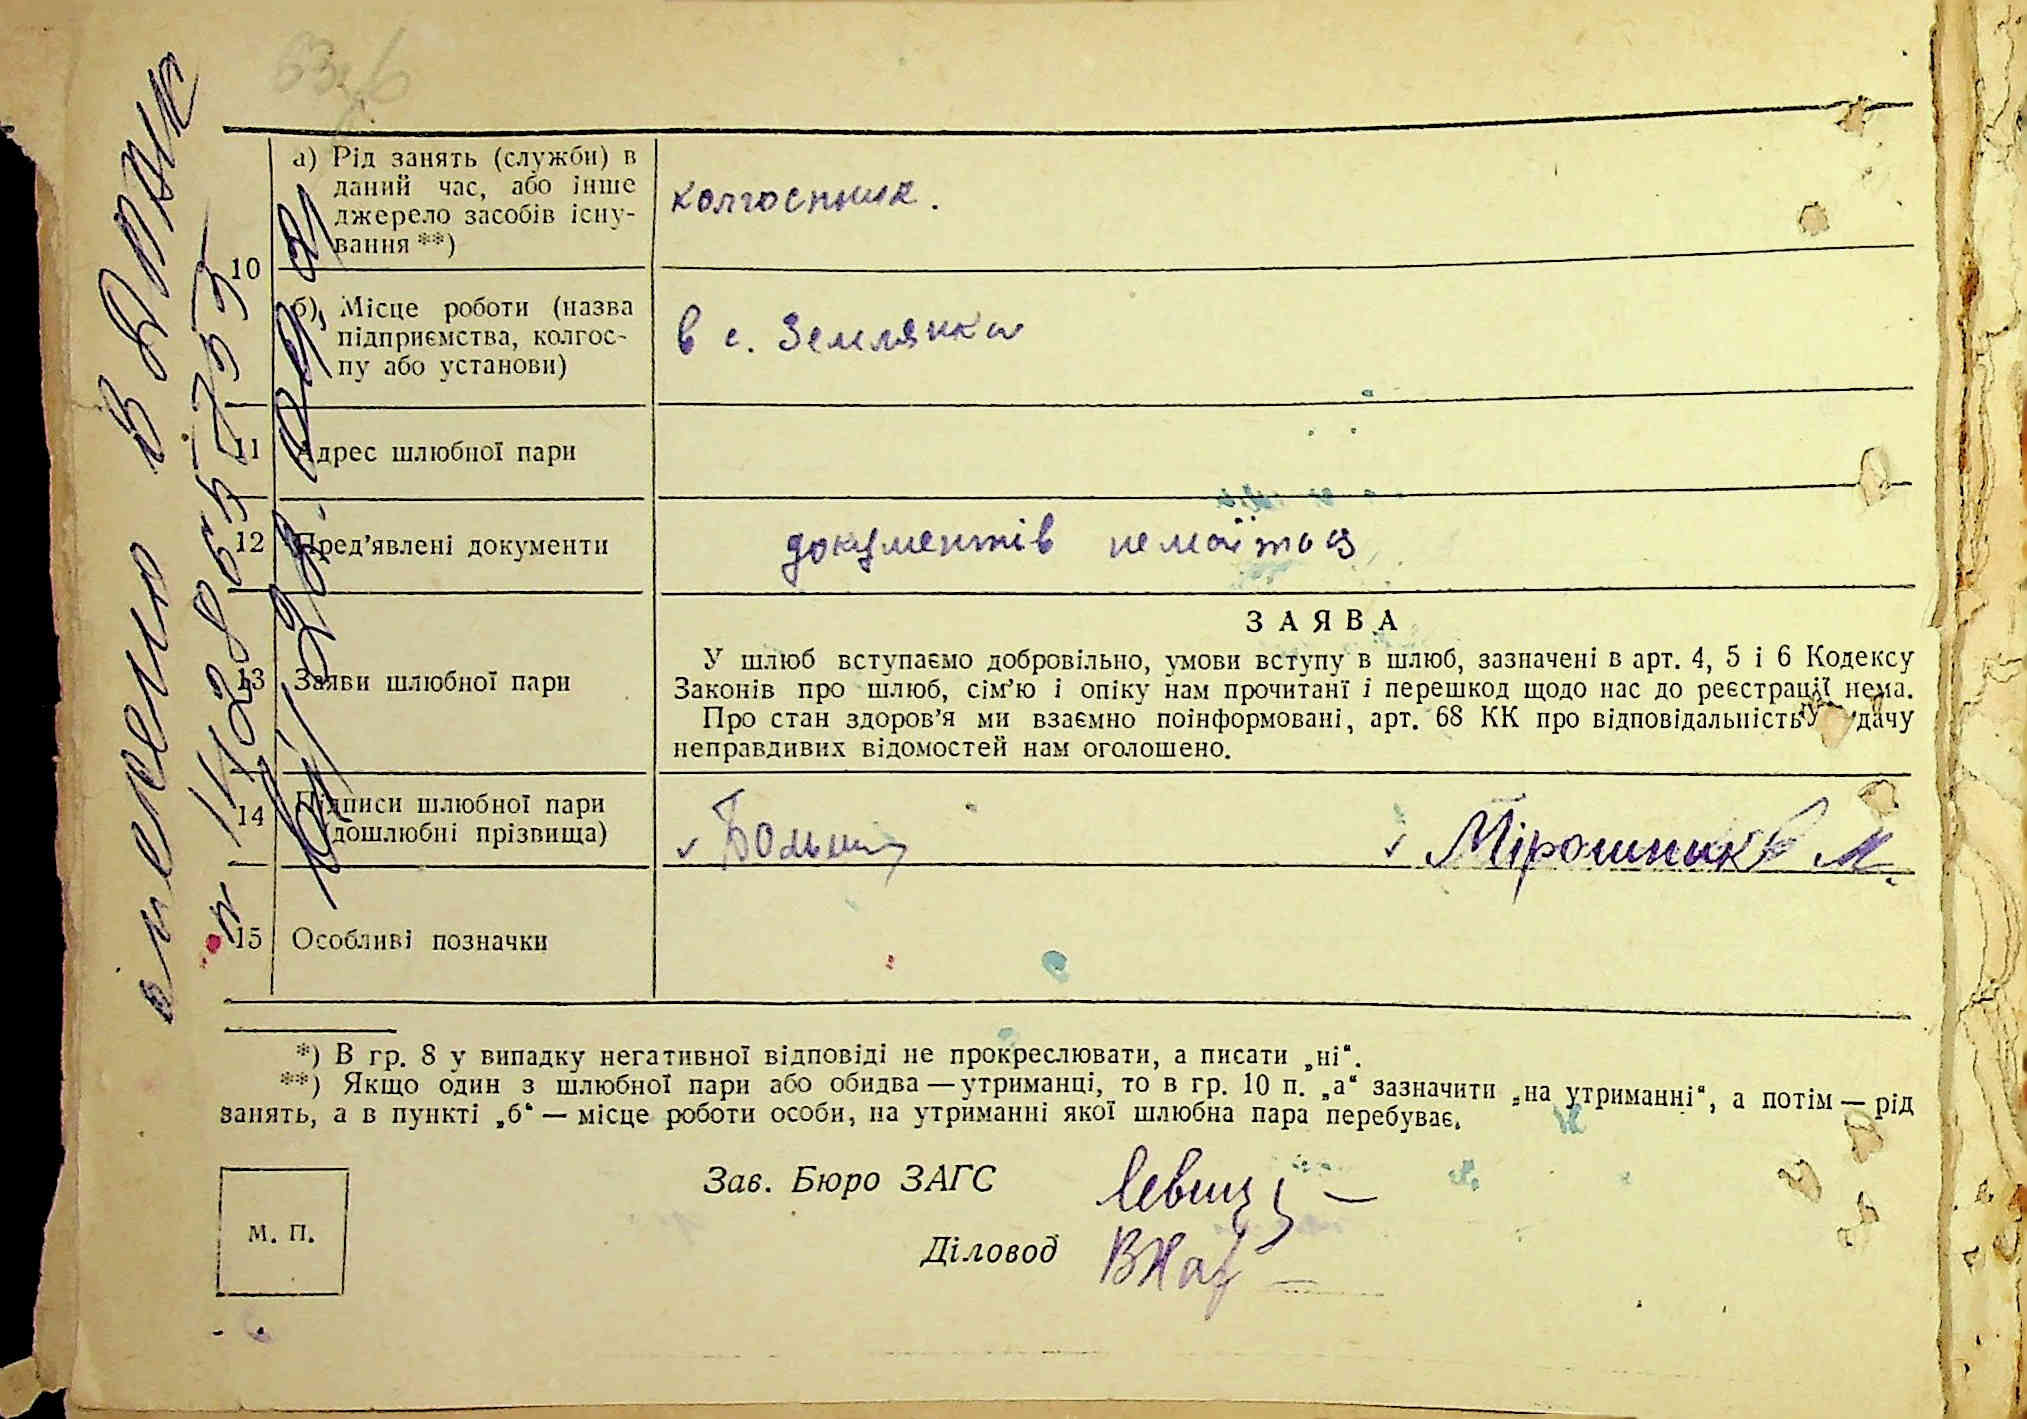 63
а) Рід занять (служби) в
даний час, або інше
джерело засобів існу-
вання **)
колгоспник.
10
б) Місце роботи (назва
підприємства, колгос-
пу або установи)
в с. Землянка
11 Адрес шлюбної пари
12 Пред'явлені документи
документів немаїться
ЗАЯВА
13 Заяви шлюбної пари
У шлюб вступаємо добровільно, умови вступу в шлюб, зазначені в арт. 4, 5 і 6 Кодексу
Законів про шлюб, сім'ю і опіку нам прочитані і перешкод щодо нас до реєстрації нема.
Про стан здоров'я ми взаємно поінформовані, арт. 68 КК про відповідальність дачу
неправдивих відомостей нам оголошено.
14 Підписи шлюбної пари
(дошлюбні прізвища)
Мірошник М.
15 Особливі позначки
*) В гр. 8 у випадку негативної відповіді не прокреслювати, а писати „ні“.
**) Якщо один з шлюбної пари або обидва — утриманці, то в гр. 10 п. „а“ зазначити „на утриманні“, а потім — рід
занять, а в пункті „б“ — місце роботи особи, на утриманні якої шлюбна пара перебуває.
Зав. Бюро ЗАГС
Діловод
М. П.